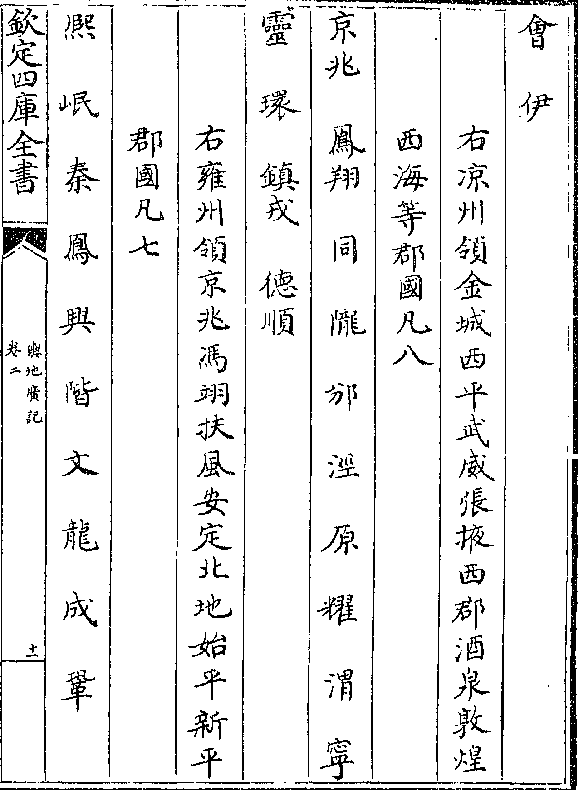 會伊
右凉州領金城西平武威張掖西郡酒泉敦煌
西海等郡國凡八
京兆鳳翔同隴邠涇原耀渭寧
靈環鎮戎德順
右雍州領京兆馮翊扶風安定北地始平新平
郡國凡七
熙岷秦鳳興階文龍成鞏
欽定四庫全書
輿地廣記
卷二
十一